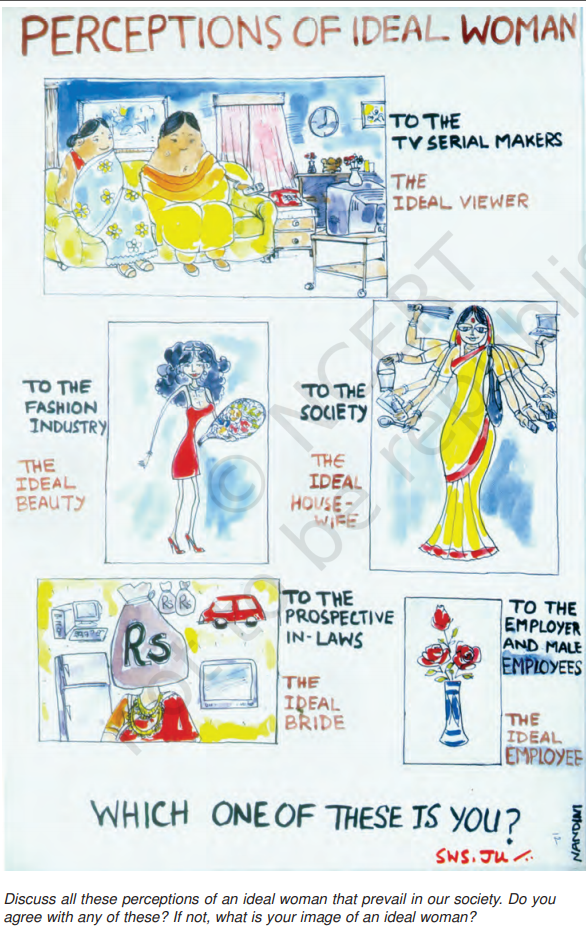 PERCEPTIONS OF IDEAL WOMAN
TO THE
TV SERIAL MAKERS
THE
IDEAL VIEWER
TO THE
FASHION
INDUSTRY
THE
IDEAL
BEAUTY
TO THE
SOCIETY
THE
IDEAL
HOUSE-
WIFE
Rs
Rs
Rs
TO THE
PROSPECTIVE
IN-LAWS
THE
IDEAL
BRIDE
TO THE
EMPLOYER
AND MALE
EMPLOYEES
THE
IDEAL
EMPLOYEE
WHICH ONE OF THESE IS YOU?
SWS.JU
NANDINI
© NCERT
not to be republis
Discuss all these perceptions of an ideal woman that prevail in our society. Do you
agree with any of these? If not, what is your image of an ideal woman?